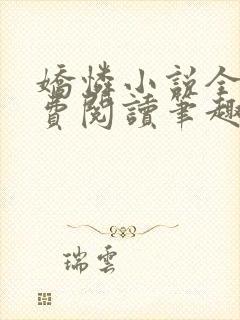 嬌憐小說全
費閱讀筆趣
瑞雲